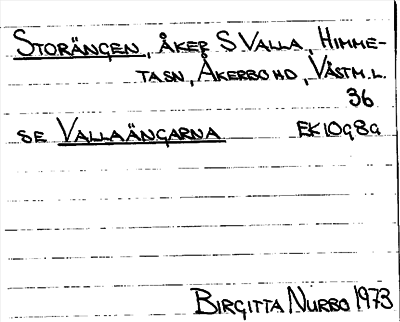 STORÄNGEN, ÅKER S VALLA, HIMME-
TA SN, ÅKERBO HD, VÄSTM. L.
36
SE VALLAÄNGARNA EK 10g8a
BIRGITTA NURBO 1973